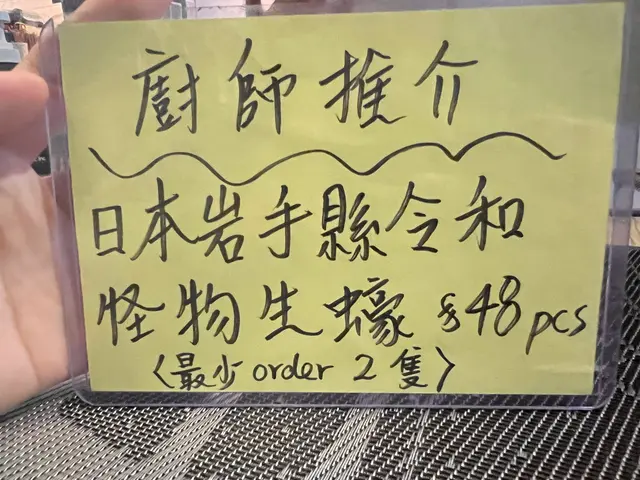 廚師推介
日本岩手縣令和
怪物生蠔 $48pcs
〈最少order 2隻〉